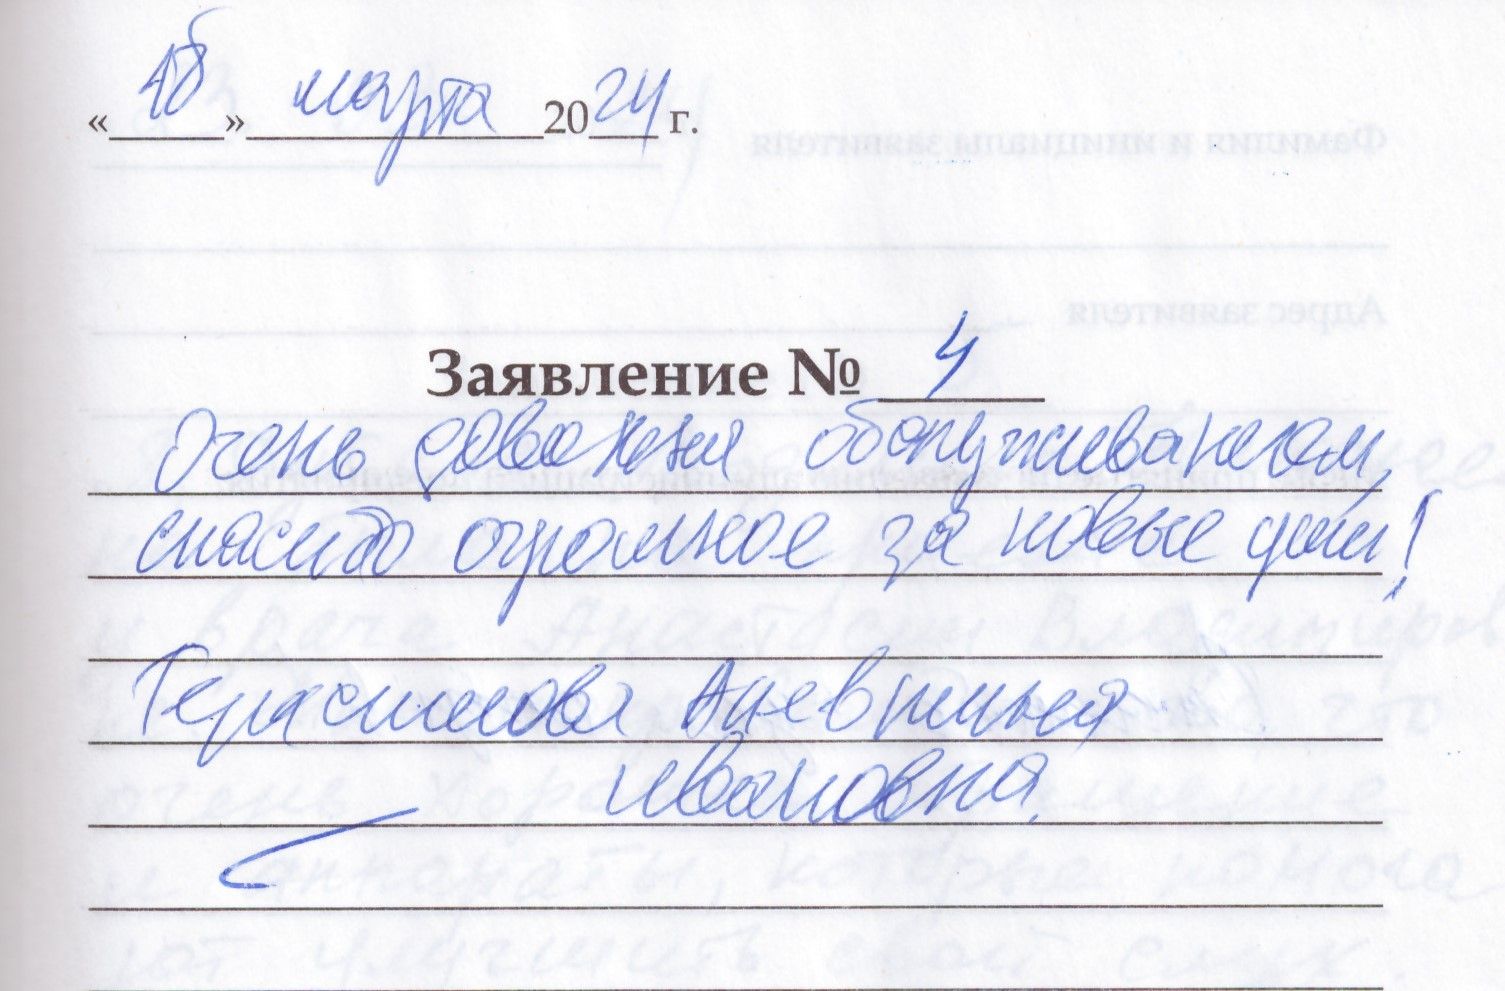 « 18 » марта 2024 г.
Заявление № 4
Очень довольна обслуживанием,
спасибо огромное за новые уши!
Герасимова
Ивановна.